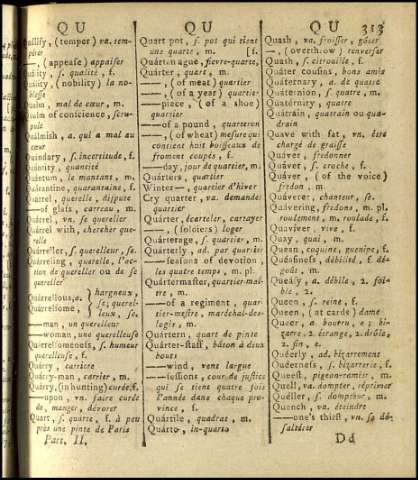 QU
QU
QU
313
Quálify, (temper) va. tem-
pérer
—, (appease) appaiser
Quálity, s. qualité, f.
Quálity, (nobility) la no-
blesse
Qualm, mal de cœur, m.
Qualm of conscience, scru-
pule
Quálmish, a. qui a mal au
cœur
Quándary, s. incertitude, f.
Quántity, quantité
Quántum, le montant, m.
Quárantine, quarantaine, f.
Quárrel, querelle, dispute
— of glass, carreau, m.
Quárrel, vn. se quereller
Quárrel with, chercher que-
relle
Quárreller, s. querelleur, se.
Quárreling, querelle, l'ac-
tion de quereller ou de se
quereller
Quárrellous, a.
Quárrelsome,
hargneux,
se; querel-
leur, se.
—man, un querelleur
—woman, une querelleuse
Quárrelsomeness, s. humeur
querelleuse, f.
Quárry, carriere
Quárry-man, carrier, m.
Quárry, (in hunting) curée, f.
—upon, vn. faire curée
de, manger, dévorer
Quart, s. quarte, f. à peu
près une pinte de Paris
Part. II.
Quart pot, s. pot qui tient
une quarte, m. [f.
Quártan ague, fievre-quarte,
Quárter, quart, m.
—, (of meat) quartier
—, (of a year) quartier
—piece, (of a shoe)
quartier
—of a pound, quarteron
—, (of wheat) mesure qui
contient huit boisseaux de
froment coupés, f.
—day, jour de quartier, m.
Quárters, quartier
Winter—, quartier d'hiver
Cry quarter, va. demander
quartier
Quárter, écarteler, cartayer
—, (soldiers) loger
Quárterage, s. quartier, m.
Quárterly, ad. par quartier
—seasons of devotion,
les quatre temps, m. pl.
Quártermaster, quartier-maî-
tre, m.
—of a regiment, quar-
tier-mestre, maréchal-des-
logis, m.
Quártern, quart de pinte
Quárter-staff, bâton à deux
bouts
—wind, vent largue
—sessions, cour de justice
qui se tient quatre fois
l'année dans chaque pro-
vince, f.
Quártile, quadrat, m.
Quárto, in-quarto
Quash, va. froisser, gâter
—, (overthrow) renverser
Quash, s. citrouille, f.
Quáter cousins, bons amis
Quáternary, a. de quatre
Quatérnion, s. quatre, m.
Quatérnity, quatre
Quátrain, quatrain ou qua-
drain
Quave with fat, vn. être
chargé de graisse
Quáver, fredonner
Quáver, s. croche, f.
Quáver, (of the voice)
fredon, m.
Quáverer, chanteur, se.
Quávering, fredons, m. pl.
roulement, m. roulade, f.
Quáviver, vive, f.
Quay, quai, m.
Quean, coquine, guenipe, f.
Quéasiness, débilité, f. dé-
goût, m.
Queásy, a. débile, 2. foi-
ble, 2.
Queen, s. reine, f.
Queen, (at cards) dame
Queer, a. bourru, e; bi-
zarre, 2. étrange, 2. drôle,
2. fin, e.
Quéerly, ad. bizarrement
Quéerness, s. bizarrerie, f.
Queest, pigeon-ramier, m.
Quell, va. dompter, réprimer
Quéller, s. dompteur, m.
Quench, va. éteindre
—one's thirst, vn. se dé-
saltérer
Dd